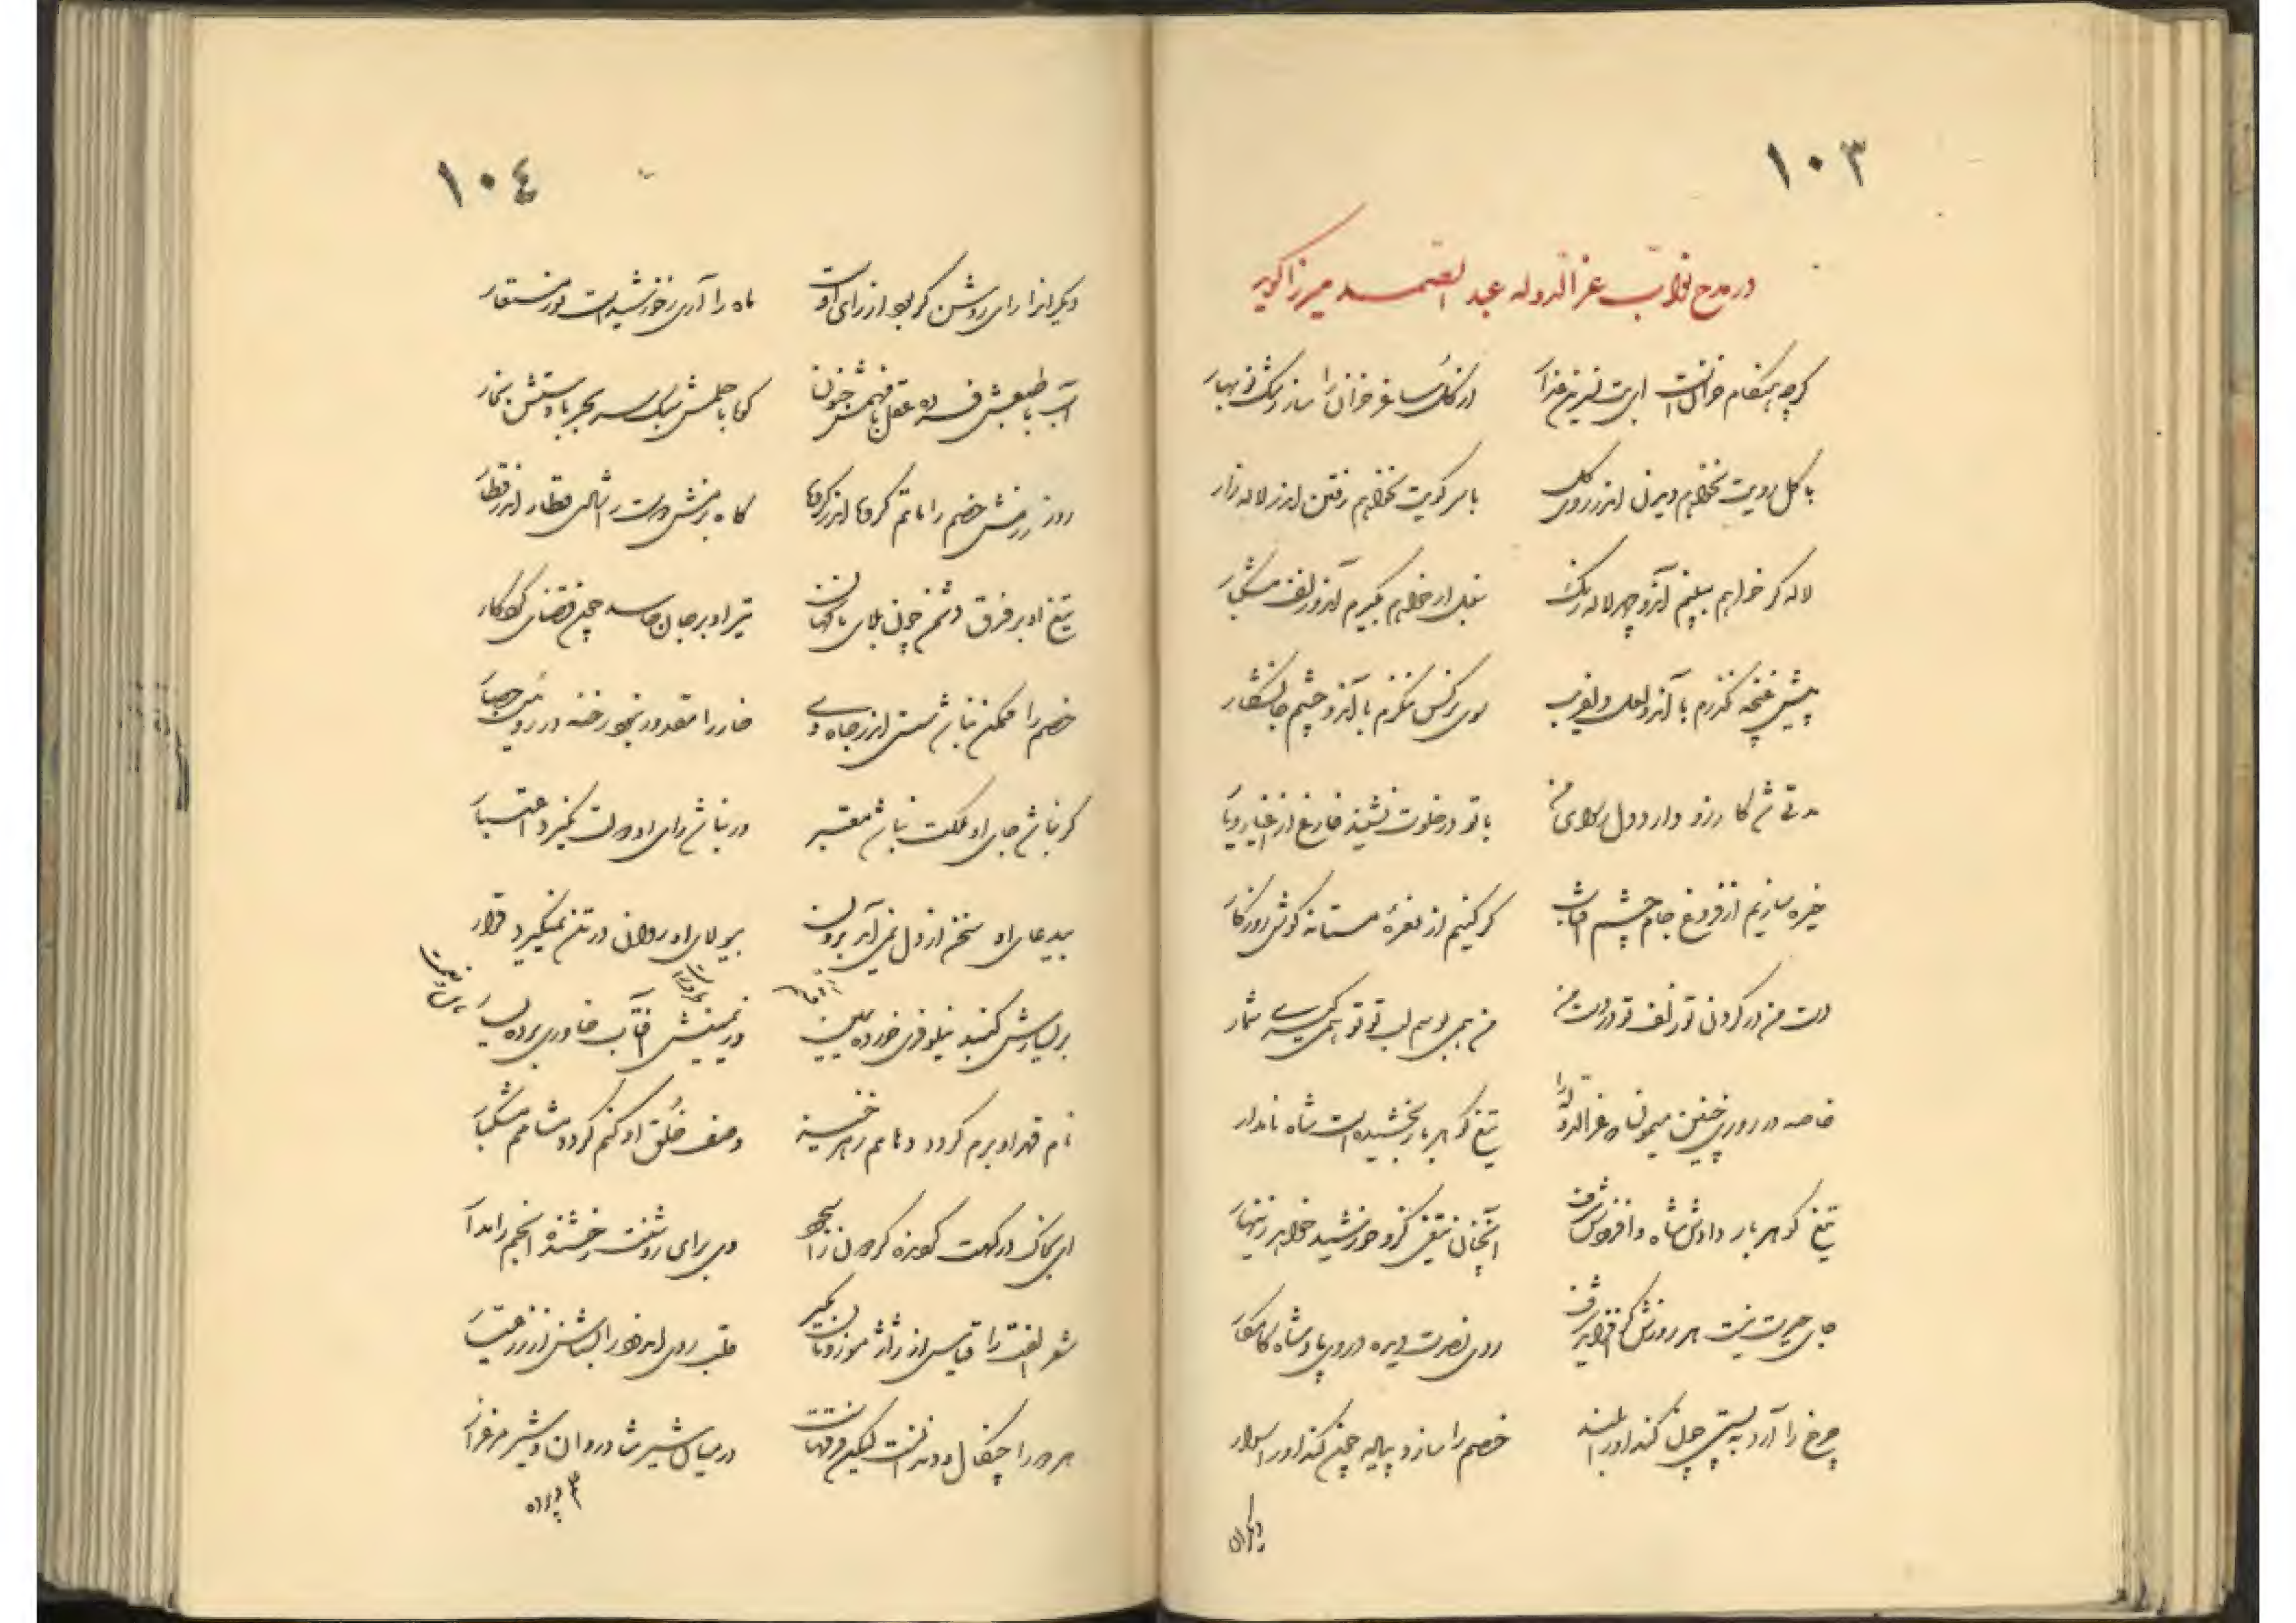 ۱۰۳
در مدح نواب عزالدوله عبدالصمد میرزا گوید
گرچه هنگام خزانست ای بت نسرین عذار
در گلستان ساغر خزان را ساز رشک نوبهار
با گل رویت نخواهم دیدن اندر روی گل
با سر کویت نخواهم رفتن اندر لاله زار
لاله گر خواهم ببینم آندو چهر لاله رنگ
سنبل ار خواهم بگیرم آندو زلف مشکبار
پیش غنچه نگذرم با آندو لعل دلفریب
سوی نرگس ننگرم با آندو چشم جانشکار
مدتی شد کارزو دارد دل شیدای من
با تو در خلوت نشیند فارغ از اغیار و یار
خیره سازیم از فروغ جام چشم آفتاب
کر کنیم از نعره مستانه گوش روزگار
دست من در گردن تو زلف تو در دست من
من همی بوسم لب تو تو همی گیری شمار
خاصه در روزی چنین میمون که عزالدوله را
تیغ گوهربار بخشیده است شاه نامدار
تیغ گوهر بار دادش شاه و افزودش شرف
آنچنان تیغی کزو خورشید خواهد زینهار
جای حیرت نیست هر روزش گر افزاید شرف
روی نصرت دیده در وی پادشاه کامکار
چرخ را آرد به پستی چون کند او را بلند
خصم را سازد پیاده چون کند او را سوار
دیگران
۱۰۴
دیگرانرا رای روشن گر بود از رای اوست
ماه را آری ز خورشید است نور مستعار
آب با طبعش فسرده عقل با فهمش جنون
کوه با حلمش سبک سر بحر با دستش بخار
روز رزمش خصم را ماتم گروها اندر گروه
گاه بزمش دوست را شادی قطار اندر قطار
تیغ او بر فرق دشمن چون بلای ناگهان
تیر او بر جان حاسد چون قضای کردگار
خصم را ممکن نباشد جستن اندر جاه وی
خار را مقدور نبود رخنه در رویین حصار
گر نباشد جاه او ملکت نباشد معتبر
ور نباشد رای او دولت نگیرد اعتبار
بی دعای او سخن از دل نمی آید برون
بی ولای او روان در تن نمیگیرد قرار
بر یسارش گنبد نیلوفری خورده یمین
وز یمینش آفتاب خاوری برده یسار
نام قهر او برم گردد دهانم زهر خیز
وصف خلق او کنم گردد مشامم مشکبار
ای بخاک درگهت بوسه گردون را سجود
وی برای روشنت رخشنده انجم را مدار
شعر الفت را قیاس از ژاژ موزونان مگیر
قلب روی اندود را نشناس از زر عیار
هر دو را چنگال و دندانست لیکن فرقهاست
در میان شیر شادروان و شیر مرغزار
پرده